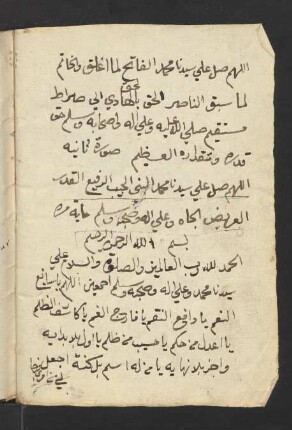 اللهم صل علي سيدنا محمد الفاتح لما اغلق والخاتم
لما سبق الناصر الحق بالحق والهادي الي صراط
مستقيم صلي الله عليه وعلي اله واصحابه وسلم حق
قدره ومقداره العظيم صورة ثانية
اللهم صل علي سيدنا محمد النبي الحبيب الرفيع القدر
العريض الجاه وعلي اله وصحبه وسلم
بسم الله الرحمن الرحيم
الحمد لله رب العالمين والصلوة والسلام علي
سيدنا محمد وعلي اله وصحبه وسلم اجمعين اللهم يا سابغ
النعم يا دافع النقم يا فارج الغم يا كاشف الظلم
يا اعدل من حكم يا حسيب من ظلم يا اول بلا بداية
ويا اخر بلا نهاية يا من له اسم بلا كنية اجعل
لي من